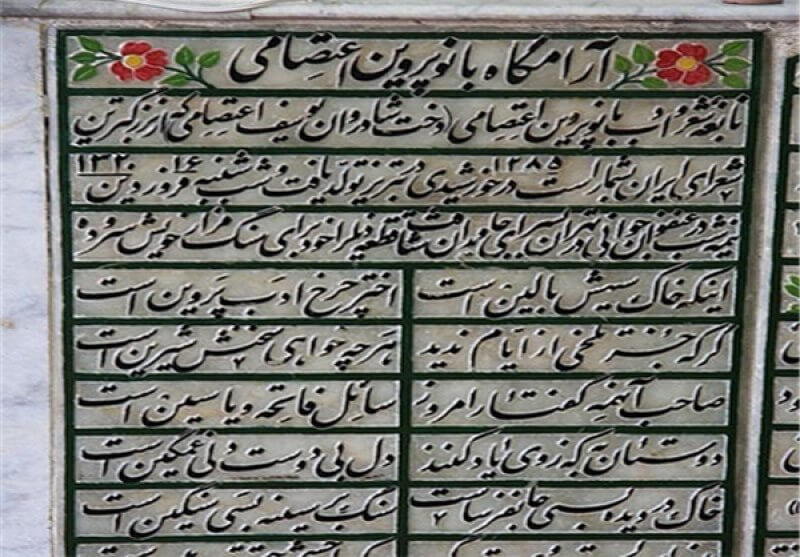 آرامگاه بانو پروین اعتصامی
نابغه شعر و ادب بانو پروین اعتصامی (دخت شادروان یوسف اعتصامی) که از بزرگترین
شعرای ایران بشمار است در ۱۲۸۵ خورشیدی در تبریز تولد یافت و شب شنبه ۱۶ فروردین ۱۳۲۰
نیمه شب در عنفوان جوانی در تهران بسرای جاودان شتافت قطعه ذیل را خود برای سنگ مزار خویش سروده
اینکه خاک سیهش بالین است اختر چرخ ادب پروین است
گرچه جز تلخی از ایام ندید هر چه خواهی سخنش شیرین است
صاحب آنهمه گفتار امروز سائل فاتحه و یاسین است
دوستان به که ز وی یاد کنند دل بی دوست دلی غمگین است
خاک در دیده بسی جانفرساست سنگ بر سینه بسی سنگین است